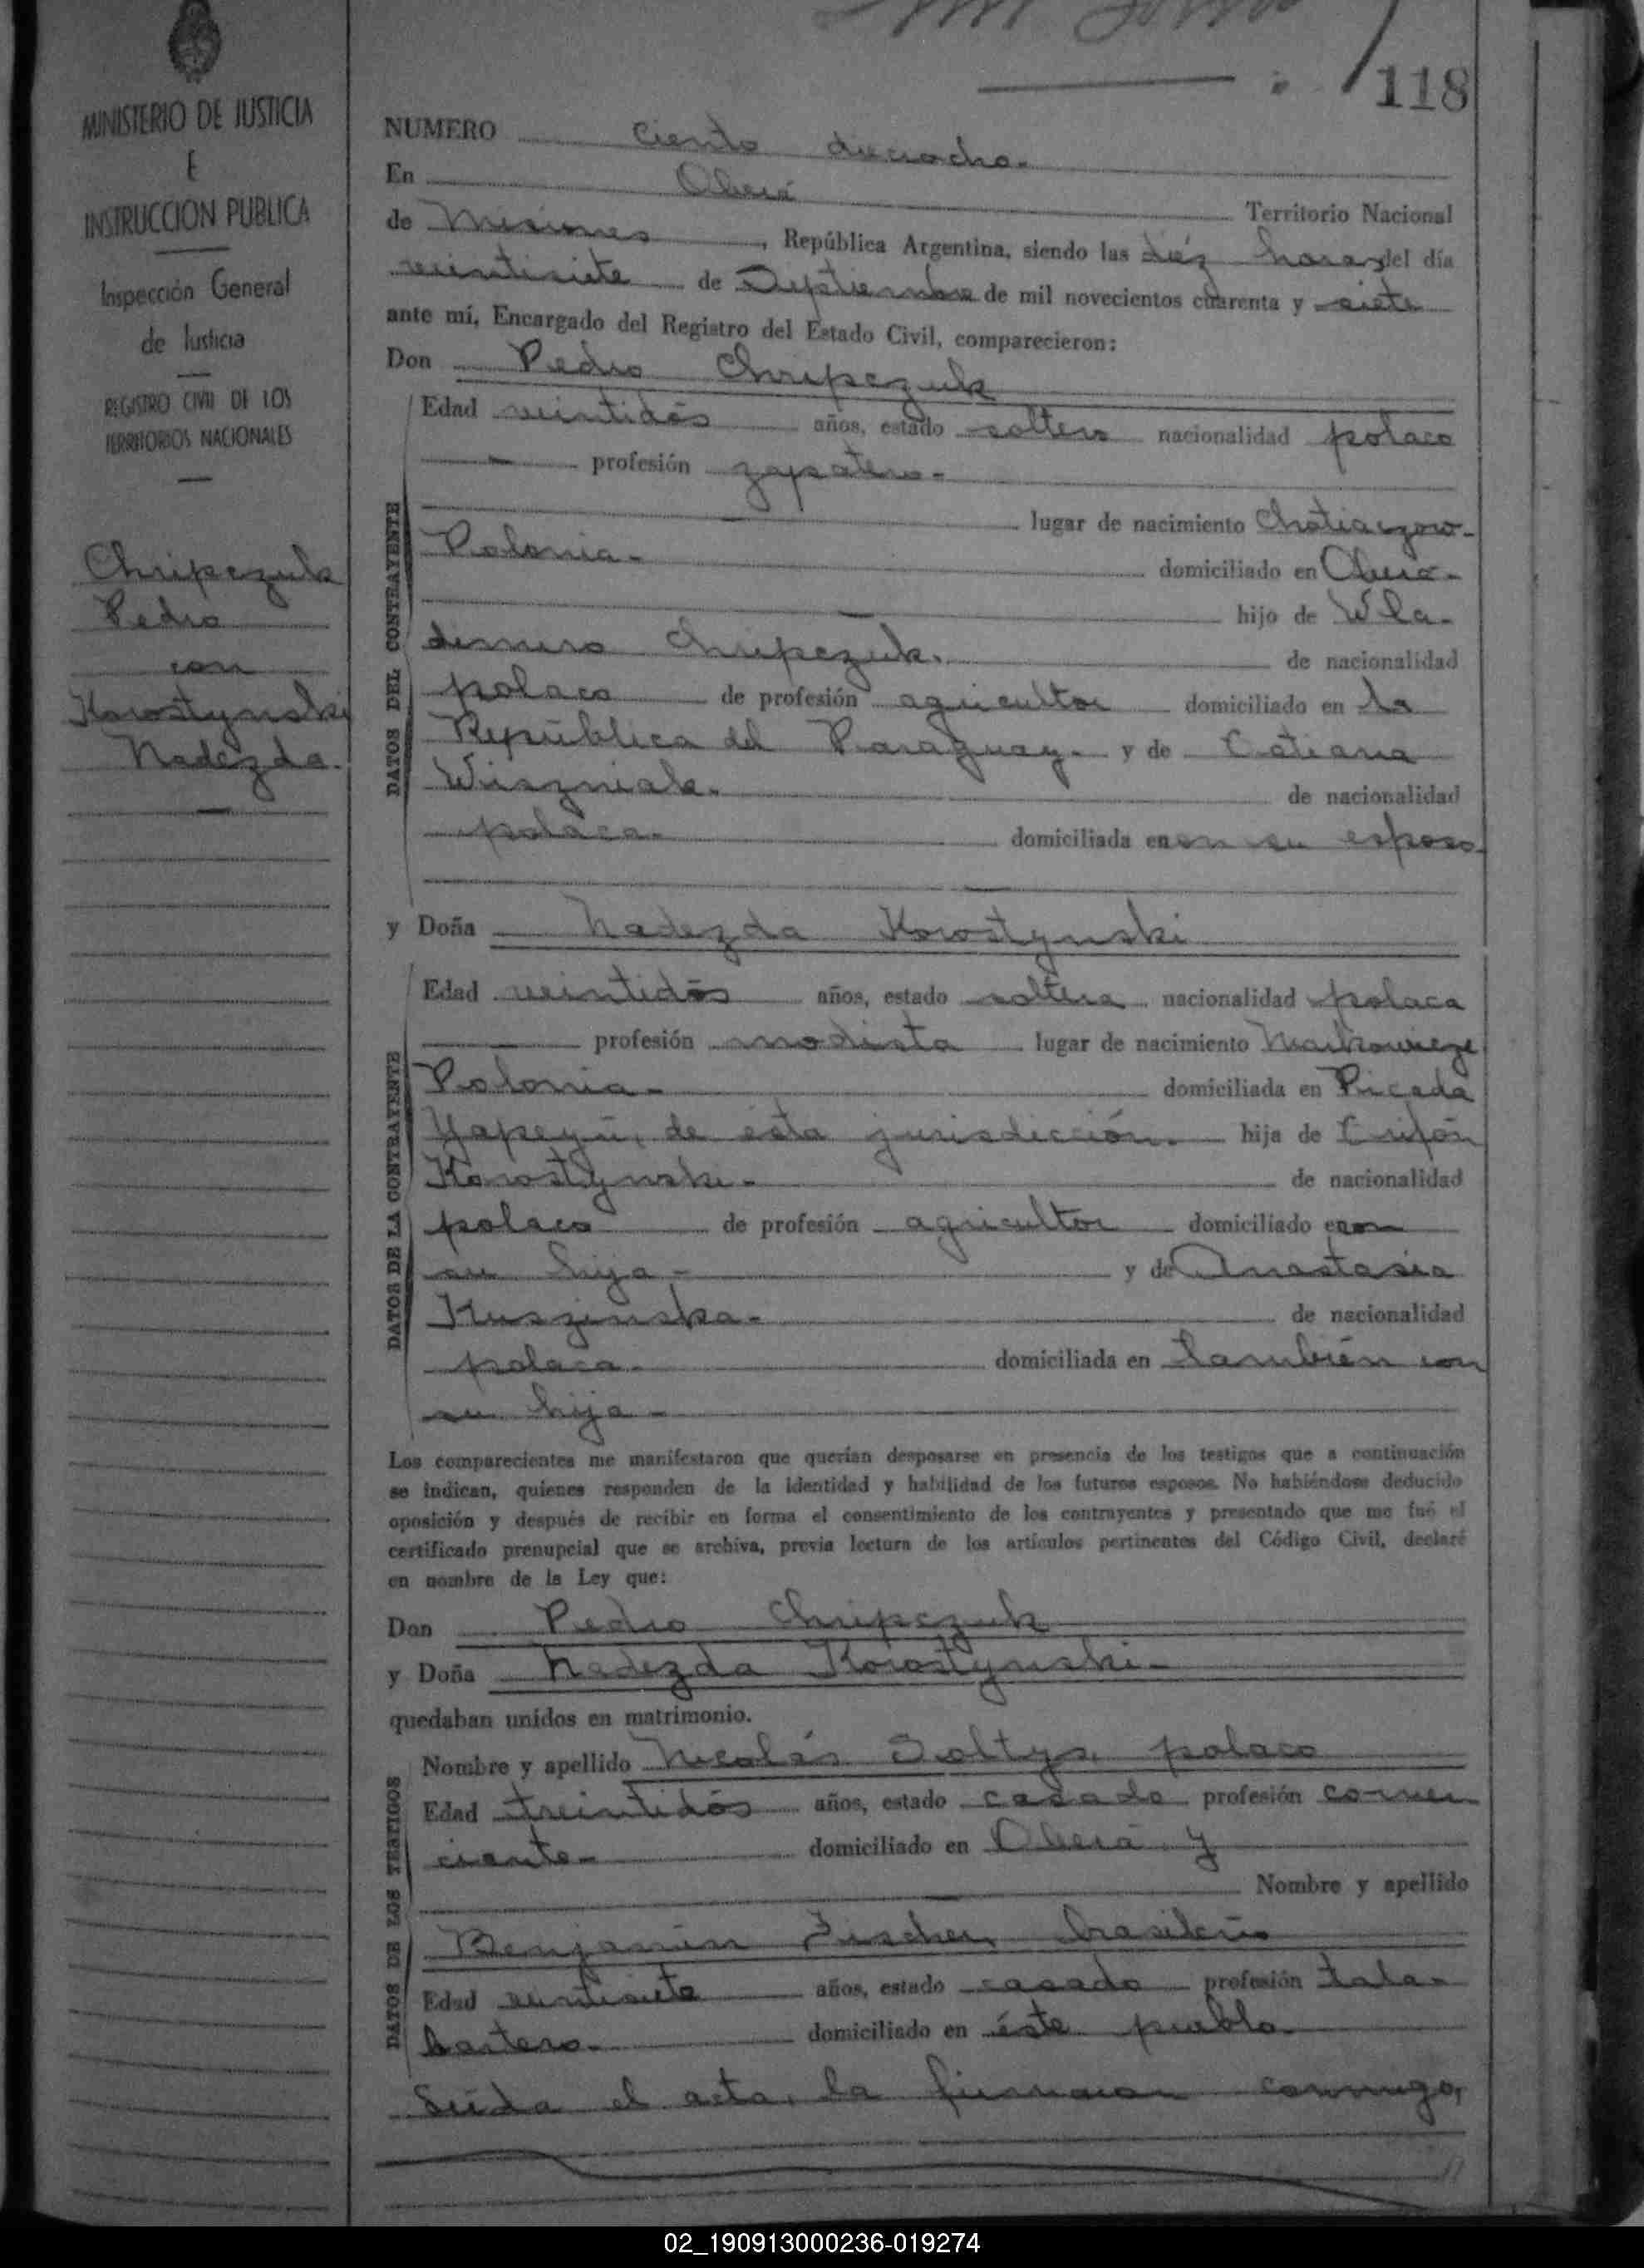 118
MINISTERIO DE JUSTICIA
E
INSTRUCCION PUBLICA
Inspección General
de Justicia
REGISTRO CIVIL DE LOS
TERRITORIOS NACIONALES
Chripczuk
Pedro
con
Korostynski
Nadezda.
NUMERO ciento dieciocho.
En Oberá Territorio Nacional
de Misiones, República Argentina, siendo las diéz horas del día
veintisiete de Septiembre de mil novecientos cuarenta y siete
ante mí, Encargado del Registro del Estado Civil, comparecieron:
Don Pedro Chripczuk
DATOS DEL CONTRAYENTE
Edad veintidós años, estado soltero nacionalidad polaco
profesión zapatero.
lugar de nacimiento Chotiaczow-
Polonia- domiciliado en Oberá-
hijo de Wla-
demiro Chripczuk. de nacionalidad
polaco de profesión agricultor domiciliado en la
República del Paraguay. y de Catiana
Wiszniak. de nacionalidad
polaca- domiciliada en con su esposo.
y Doña Nadezda Korostynski
DATOS DE LA CONTRAYENTE
Edad veintidós años, estado soltera nacionalidad polaca
profesión modista lugar de nacimiento Markowicze
Polonia- domiciliada en Picada
Yapeyú, de ésta jurisdicción. hija de Trifón
Korostynski- de nacionalidad
polaco de profesión agricultor domiciliado en con
su hija- y de Anastasia
Kuszinska- de nacionalidad
polaca- domiciliada en también con
su hija-
Los comparecientes me manifestaron que querían desposarse en presencia de los testigos que a continuación
se indican, quienes responden de la identidad y habilidad de los futuros esposos. No habiéndose deducido
oposición y después de recibir en forma el consentimiento de los contrayentes y presentado que me fué el
certificado prenupcial que se archiva, previa lectura de los artículos pertinentes del Código Civil, declaré
en nombre de la Ley que:
Don Pedro Chripczuk
y Doña Nadezda Korostynski-
quedaban unidos en matrimonio.
DATOS DE LOS TESTIGOS
Nombre y apellido Nicolás Soltys, polaco
Edad treintidós años, estado casado profesión comer
ciante- domiciliado en Oberá y
Nombre y apellido
Benjamín Fischer, brasileño
Edad veintisiete años, estado casado profesión tala-
bartero- domiciliado en éste pueblo-
Leída el acta, la firmaron conmigo,
02_190913000236-019274